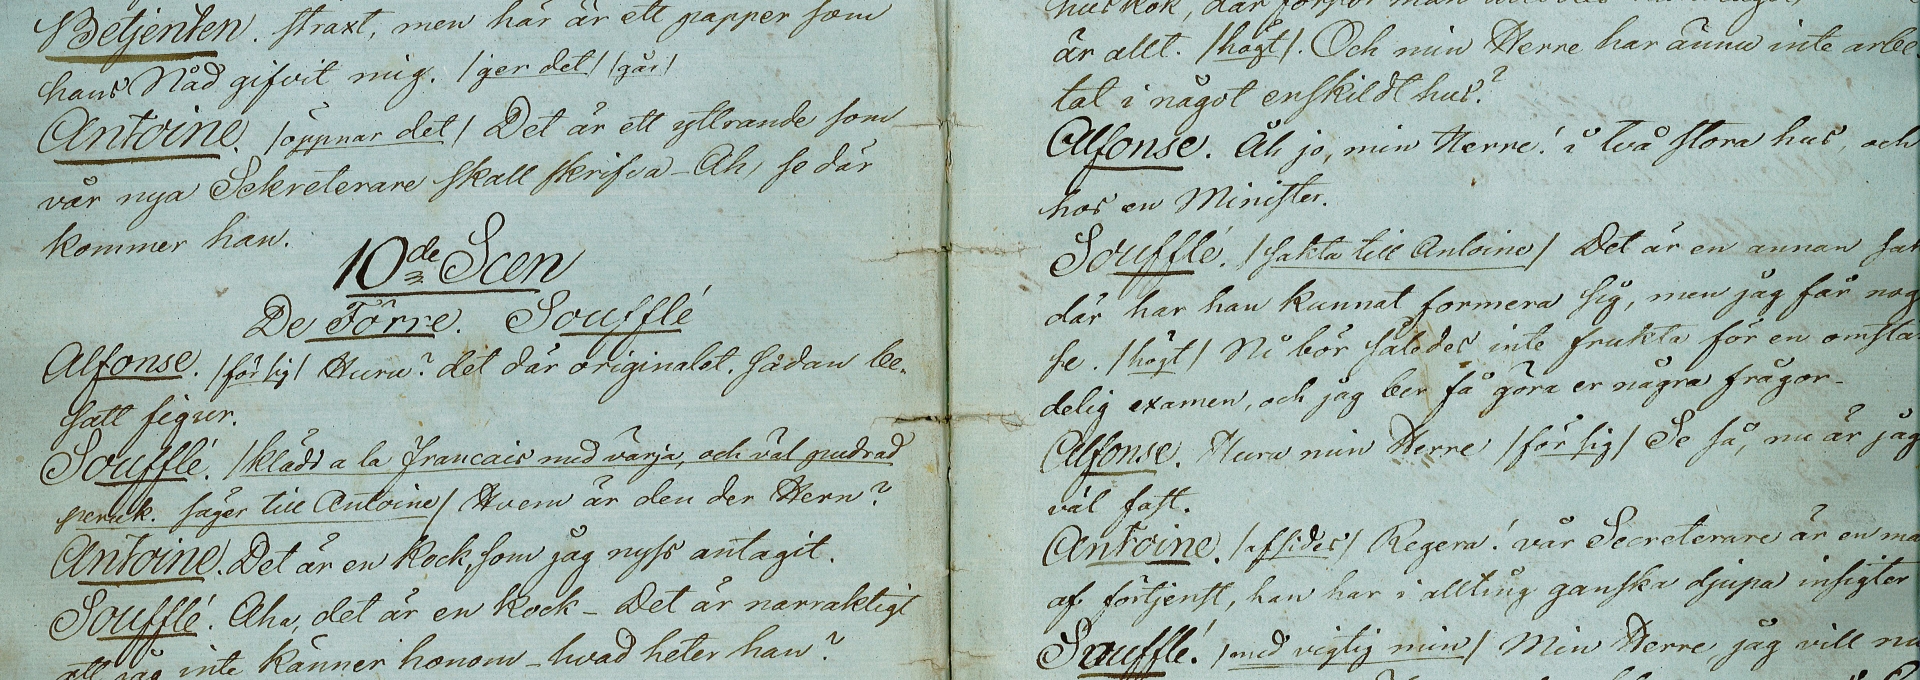 Betjenten. straxt, men här är ett papper som
hans Nåd gifvit mig. /ger det/ /går/
Antoine. /öppnar det/ Det är ett yttrande som
vår nya Sekreterare skall skrifva - Ah, se där
kommer han.
10de Scen
De Förre. Soufflé
Alfonse. /för sig/ Huru? det där originalet. sådan be-
satt figur.
Soufflé. /klädd a la francais med värja, och väl pudrad
peruk. säger till Antoine/ Hvem är den der Hern?
Antoine. Det är en Kock, som jag nyss antagit.
Soufflé. Aha, det är en kock - Det är narraktigt
att jag inte känner honom - hvad heter han?
huskock, därför
är allt. /högt/. Och min Herre har ännu inte arbe-
tat i något enskildt hus?
Alfonse. Åh jo, min Herre! i två stora hus, och
hos en Minister.
Soufflé. /sakta till Antoine/ Det är en annan sak
där har han kunnat formera sig, men jag får nog
se. /högt/ Ni bör således inte frukta för en omstän
delig examen, och jag ber få göra er några frågor-
Alfonse. Huru min Herre /för sig/ Se så, nu är jag
väl fast.
Antoine. /afsides/ Regera! vår Secreterare är en ma
af förtjenst, han har i allting ganska djupa insigter
Soufflé. /med vigtig min/ Min Herre, jag vill nu